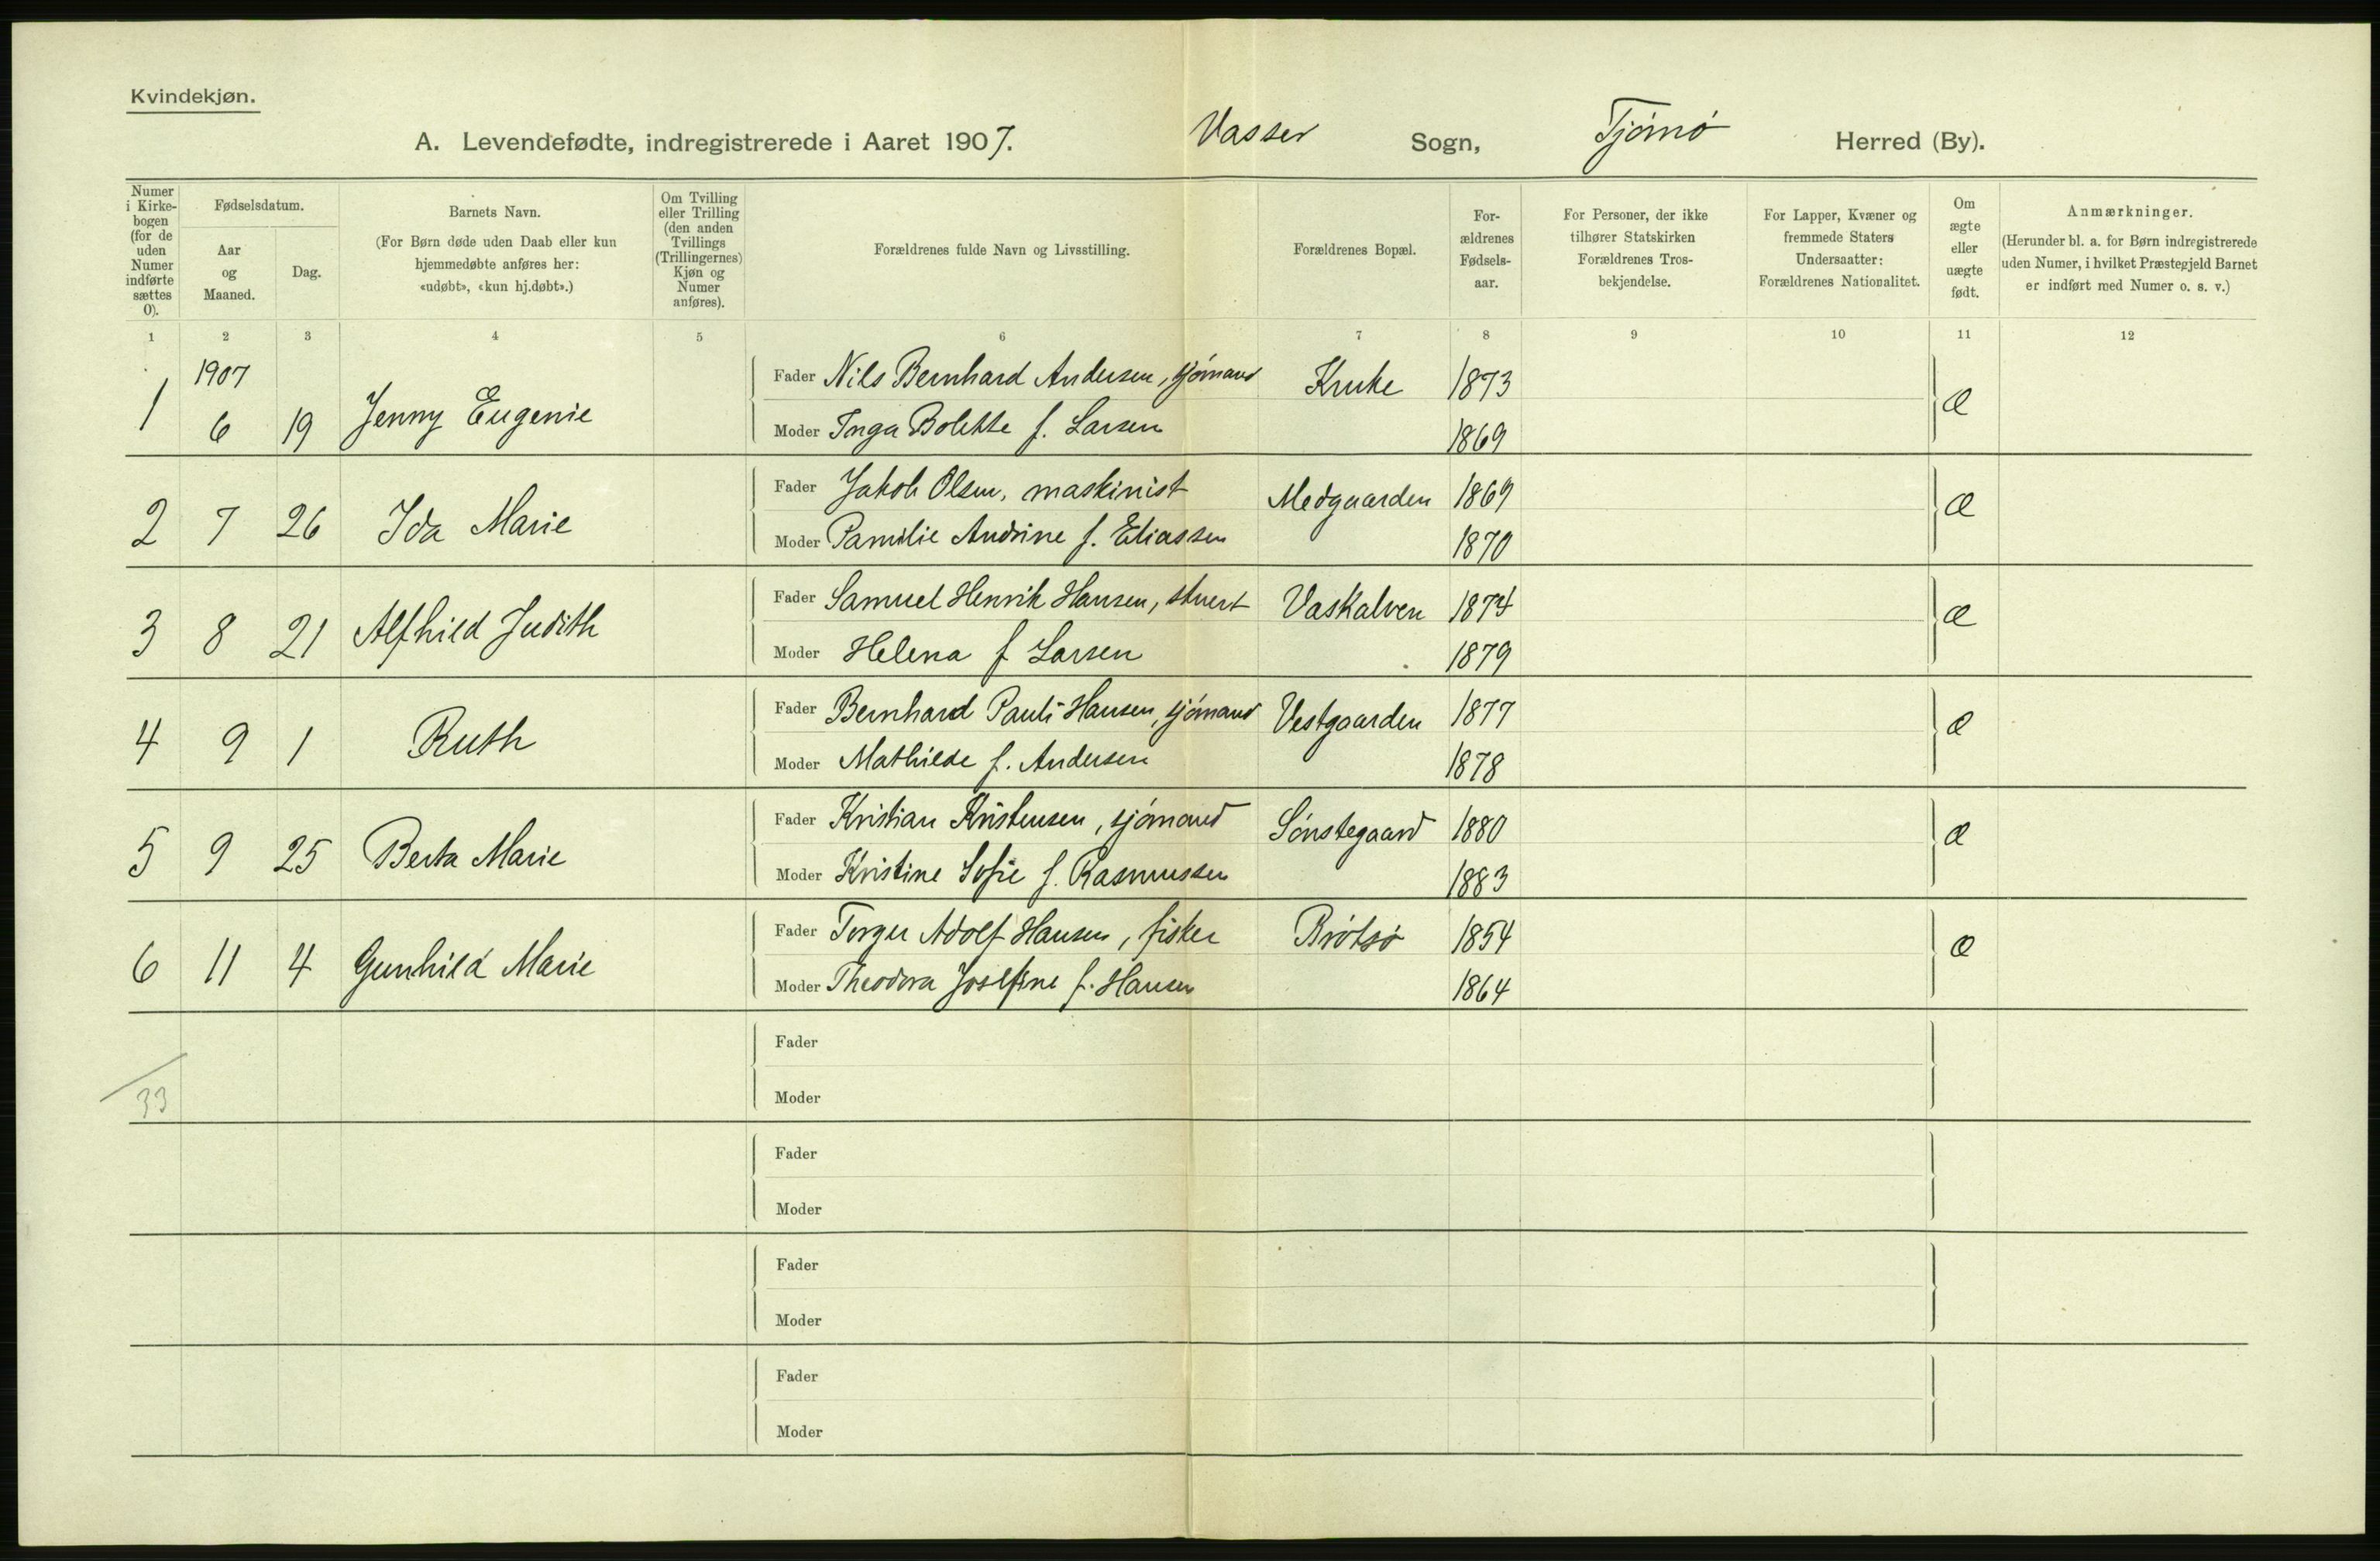 Kvindekjøn.
A. Levendefødte, indregistrerede i Aaret 1907. Vasser Sogn, Tjømø Herred (By).
Numer i Kirkebogen (for de uden Numer indførte sættes 0).
Fødselsdatum.
Aar og Maaned.
Dag.
Barnets Navn.
(For Børn døde uden Daab eller kun hjemmedøbte anføres her: «udøbt», «kun hj.døbt».)
Om Tvilling eller Trilling (den anden Tvillings (Trillingernes) Kjøn og Numer anføres).
Forældrenes fulde Navn og Livsstilling.
Forældrenes Bopæl.
Forældrenes Fødselsaar.
For Personer, der ikke tilhører Statskirken Forældrenes Trosbekjendelse.
For Lapper, Kvæner og fremmede Staters Undersaatter: Forældrenes Nationalitet.
Om ægte eller uægte født.
Anmærkninger.
(Herunder bl. a. for Børn indregistrerede uden Numer, i hvilket Præstegjeld Barnet er indført med Numer o. s. v.)
1 2 3 4 5 6 7 8 9 10 11 12
1907
1 6 19 Jenny Eugenie Fader Nils Bernhard Andersen, sjømand Kruke 1873 Æ
Moder Inga Bolette f. Larsen 1869
2 7 26 Ida Marie Fader Jakob Olsen, maskinist Medgaarden 1869 Æ
Moder Pamilie Andrine f. Eliassen 1870
3 8 21 Alfhild Judith Fader Samuel Henrik Hansen, stuert Vaskalven 1874 Æ
Moder Helena f Larsen 1879
4 9 1 Ruth Fader Bernhard Pauli Hansen, sjømand Vestgaarden 1877 Æ
Moder Mathilde f. Andersen 1878
5 9 25 Berta Marie Fader Kristian Kristensen, sjømand Sønstegaard 1880 Æ
Moder Kristine Sofie f. Rasmussen 1883
6 11 4 Gunhild Marie Fader Torger Adolf Hansen, fisker Brøtsø 1854 Æ
Moder Theodora Josefine f. Hansen 1864
Fader
33 Moder
Fader
Moder
Fader
Moder
Fader
Moder